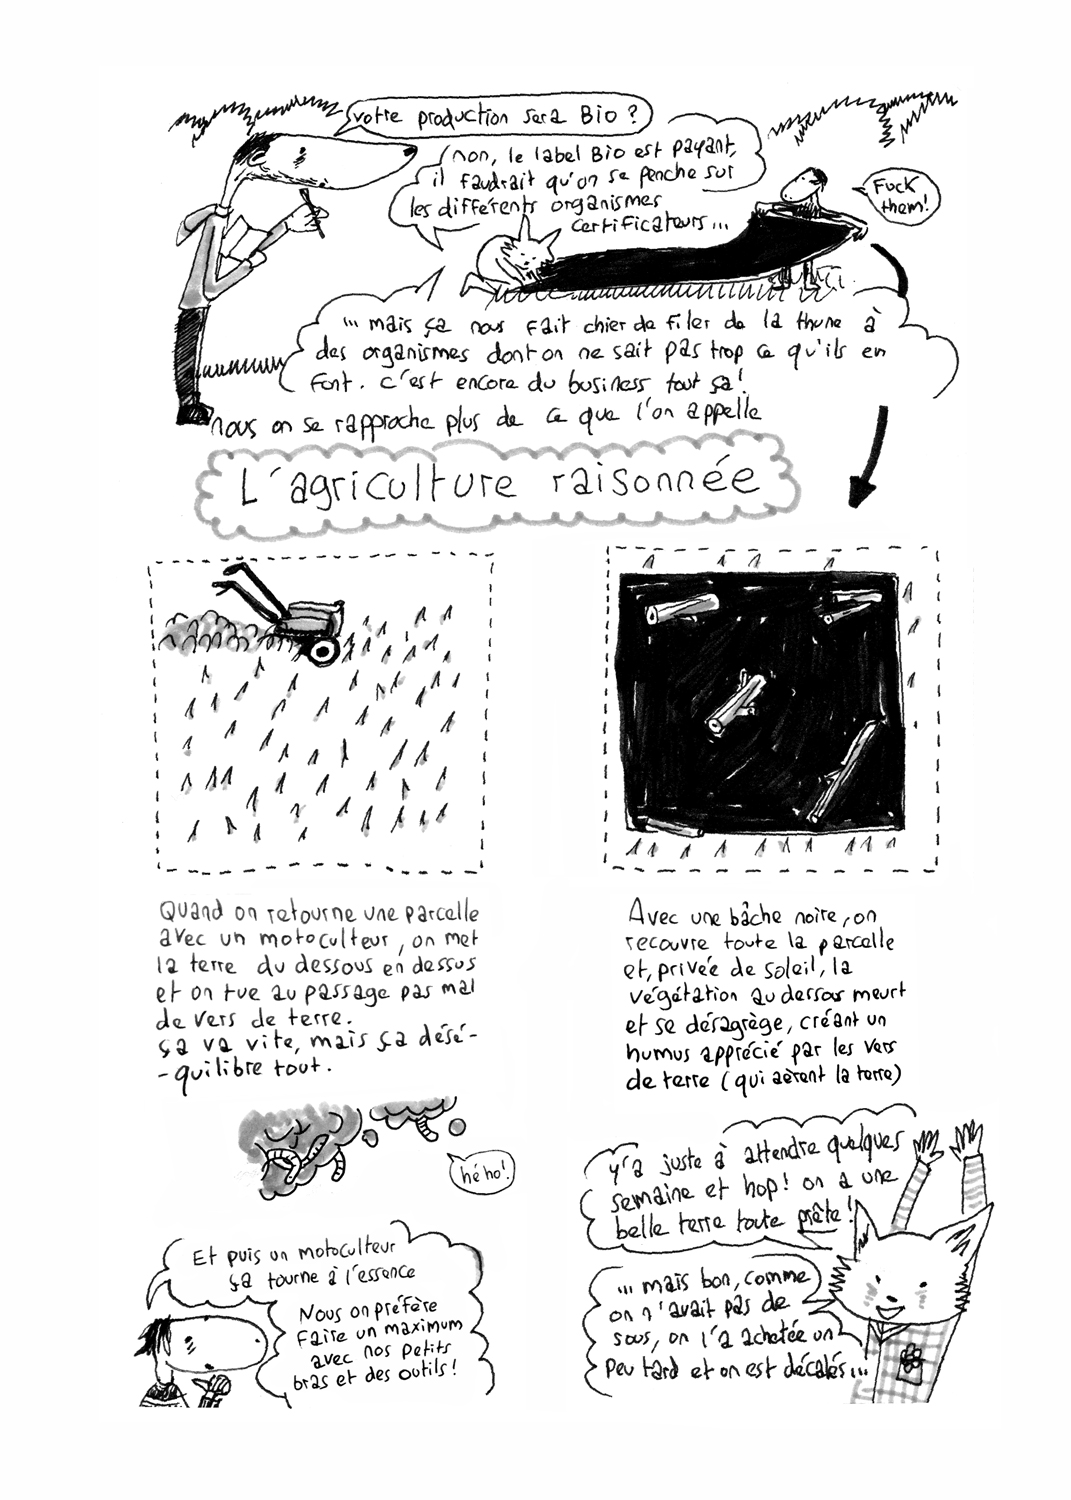 votre production sera Bio ?
non, le label Bio est payant,
il faudrait qu'on se penche sur
les différents organismes
certificateurs...
Fuck
them!
... mais ça nous fait chier de filer de la thune à
des organismes dont on ne sait pas trop ce qu'ils en
font. c'est encore du business tout ça!
nous on se rapproche plus de ce que l'on appelle
L'agriculture raisonnée
Quand on retourne une parcelle
avec un motoculteur, on met
la terre du dessous en dessus
et on tue au passage pas mal
de vers de terre.
ça va vite, mais ça désé-
-quilibre tout.
hé ho!
Et puis un motoculteur
ça tourne à l'essence
Nous on préfère
faire un maximum
avec nos petits
bras et des outils!
Avec une bâche noire, on
recouvre toute la parcelle
et, privée de soleil, la
végétation au dessous meurt
et se désagrège, créant un
humus apprécié par les vers
de terre (qui aèrent la terre)
Y'a juste à attendre quelques
semaine et hop! on a une
belle terre toute prête!
... mais bon, comme
on n'avait pas de
sous, on l'a achetée un
peu tard et on est décalés...